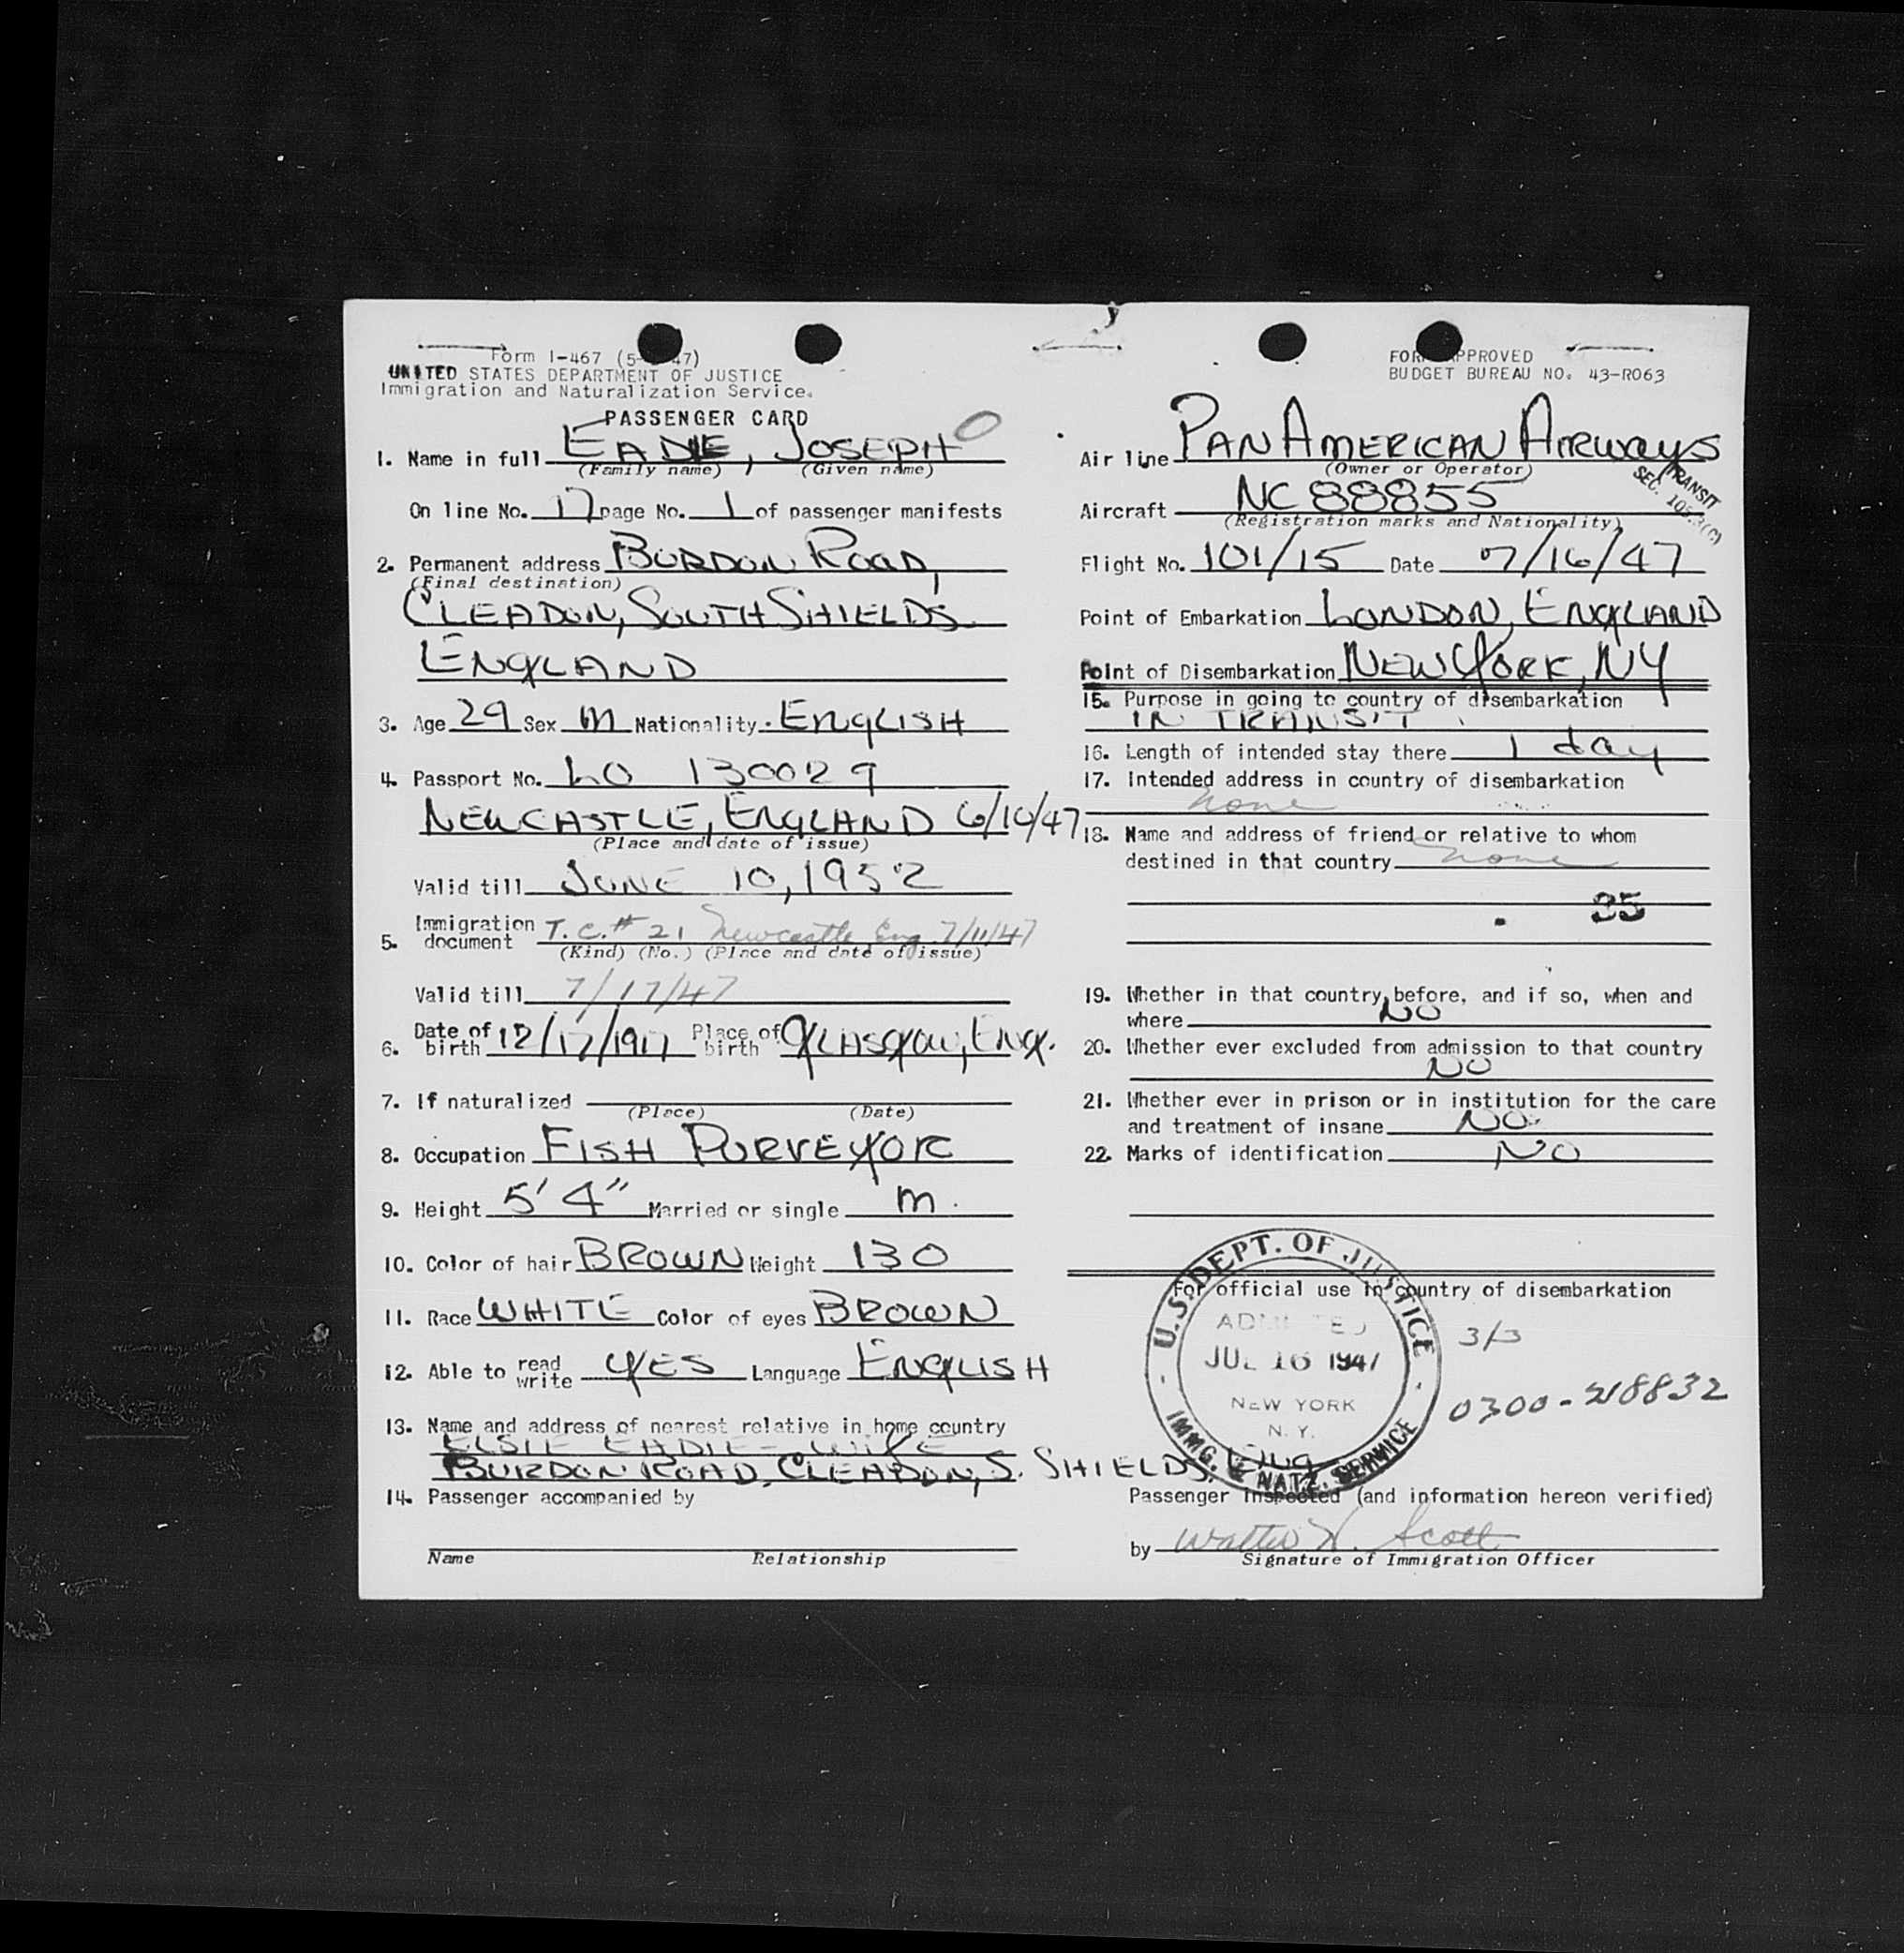 Form I-467 (5- 47)
UNITED STATES DEPARTMENT OF JUSTICE
Immigration and Naturalization Service.
PASSENGER CARD
1. Name in full EADIE, JOSEPH
(Family name) (Given name)
On line No. 17 page No. 1 of passenger manifests
2. Permanent address BURDON ROAD,
(Final destination)
CLEADON, SOUTH SHIELDS
ENGLAND
3. Age 29 Sex M Nationality ENGLISH
4. Passport No. LO 130029
NEWCASTLE, ENGLAND 6/10/47
(Place and date of issue)
Valid till JUNE 10, 1952
5. Immigration document T.C. # 21 Newcastle Eng 7/11/47
(Kind) (No.) (Place and date of issue)
Valid till 7/17/47
6. Date of birth 12/17/1917 Place of birth GLASGOW, ENG.
7. If naturalized
(Place) (Date)
8. Occupation FISH PURVEYOR
9. Height 5' 4" Married or single M.
10. Color of hair BROWN Weight 130
11. Race WHITE Color of eyes BROWN
12. Able to read write YES Language ENGLISH
13. Name and address of nearest relative in home country
ELSIE EADIE - WIFE
BURDON ROAD, CLEADON, S. SHIELDS, ENG
14. Passenger accompanied by
Name Relationship
FORM APPROVED
BUDGET BUREAU NO. 43-R063
Air line PAN AMERICAN AIRWAYS
(Owner or Operator)
TRANSIT
SEC.
Aircraft NC 88855
(Registration marks and Nationality)
Flight No. 101/15 Date 7/16/47
Point of Embarkation LONDON, ENGLAND
Point of Disembarkation NEW YORK, NY
15. Purpose in going to country of disembarkation
IN TRANSIT
16. Length of intended stay there 1 day
17. Intended address in country of disembarkation
none
18. Name and address of friend or relative to whom
destined in that country none
35
19. Whether in that country before, and if so, when and
where NO
20. Whether ever excluded from admission to that country
NO
21. Whether ever in prison or in institution for the care
and treatment of insane NO.
22. Marks of identification NO
For official use in country of disembarkation
U.S. DEPT. OF JUSTICE
ADMITTED
JUL 16 1947
NEW YORK
N.Y.
IMMG. & NATZ. SERVICE
3/3
0300-
Passenger inspected (and information hereon verified)
by Walter N. Scott
Signature of Immigration Officer